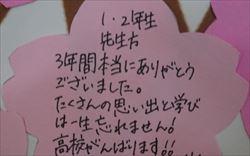 1・2年生
先生方
3年間本当にありがとう
ございました。
たくさんの思い出と学び
は一生忘れません!
高校がんばります!!